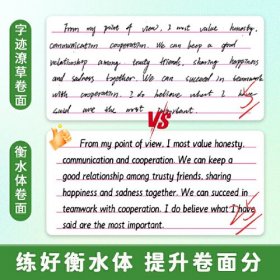 字迹潦草卷面
From my point of view, I most value honesty,
communication cooperation. We can keep a good
relationship among trusty friends, sharing happiness
and sadness together. We can succeed in teamwork
with cooperation. I do believe what I have
said are the most important.
VS
衡水体卷面
From my point of view, I most value honesty,
communication and cooperation. We can keep a
good relationship among trusty friends, sharing
happiness and sadness together. We can succeed in
teamwork with cooperation. I do believe what I have
said are the most important.
练好衡水体 提升卷面分